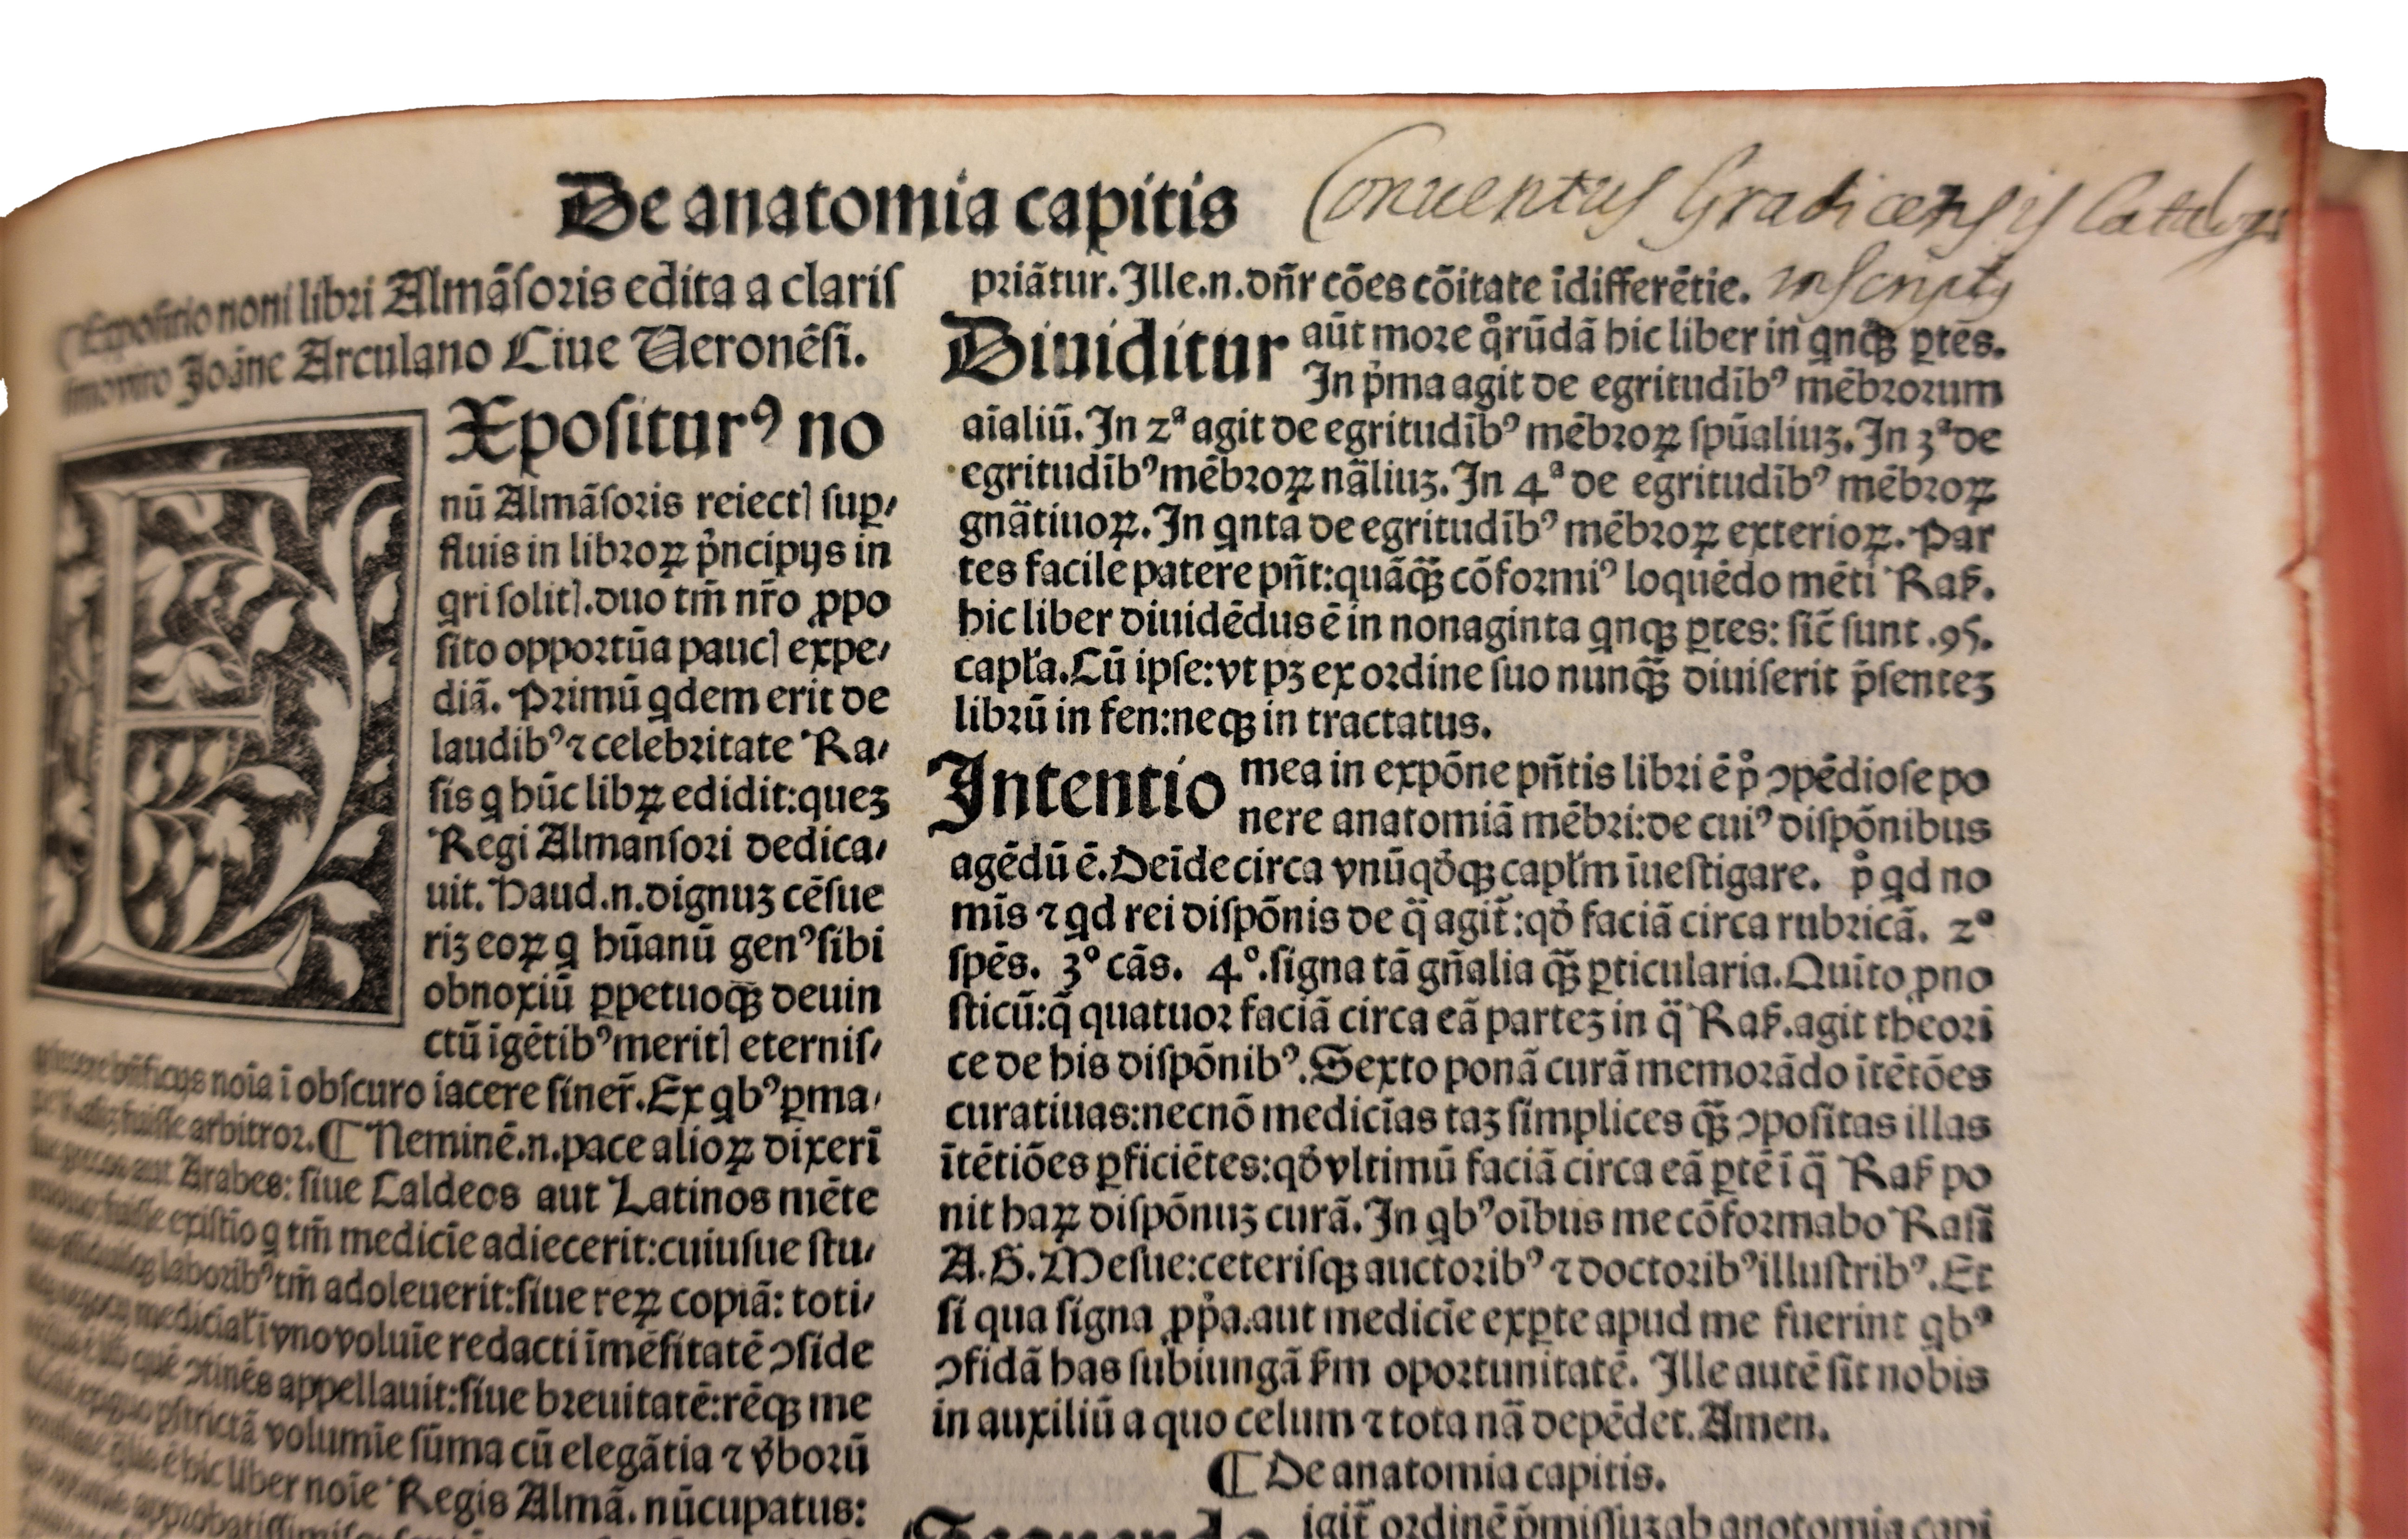 De anatomia capitis
Conuentus Gradicensis Catalogo
inscriptus
Expositio noni libri Almãsoris edita a claris
Joãne Arculano Ciue Ueronẽsi.
EXpositurꝰ no
nũ Almãsoris reiectꝭ suꝑ⸗
fluis in libroꝝ pͥncipijs in
q̇ri solitꝭ.duo tm̃ nr̃o ꝓpo
sito opportũa paucꝭ expe⸗
diã. Primũ qdem erit de
laudibꝰ ⁊ celebritate Ra⸗
sis q hũc libꝝ edidit:quez
Regi Almansori dedica⸗
uit. Haud.n.dignuz cẽsue
riz eoꝝ q hũanũ genꝰ sibi
obnoxiũ ꝑpetuoqꝫ deuin
ctũ ĩgẽtibꝰ meritꝭ eternis⸗
noĩa ĩ obscuro iacere siner̃.Ex qbꝰ ꝑma⸗
fuisse arbitror.¶ Neminẽ.n.pace alioꝝ dixerĩ
aut Arabes: siue Caldeos aut Latinos mẽte
fuisse existĩo q tm̃ medicĩe adiecerit:cuiusue stu⸗
laboribꝰ tm̃ adoleuerit:siue reꝝ copiã: toti⸗
ĩ vno voluĩe redacti ĩmẽsitatẽ ↄside
quẽ ↄtinẽs appellauit:siue breuitatẽ:rẽqꝫ me
pstrictã volumĩe sũma cũ elegãtia ⁊ v̓borũ
ẽ hic liber noĩe Regis Almã. nũcupatus:
priãtur.Ille.n.dñr cões cõitate ĩdifferẽtie.
Diuiditur aũt more qͦrũdã hic liber in qnqꝫ ꝑtẽs.
In pͥma agit de egritudĩbꝰ mẽbrorum
aĩaliũ.In 2ª agit de egritudĩbꝰ mẽbroꝝ spũaliuz.In 3ª de
egritudĩbꝰ mẽbroꝝ nãliuz.In 4ª de egritudĩbꝰ mẽbroꝝ
gnãtiuoꝝ.In qnta de egritudĩbꝰ mẽbroꝝ exterioꝝ.Par
tes facile patere pñt:quãqꝫ̃ cõformiꝰ loquẽdo mẽti Raẜ.
hic liber diuidẽdus ẽ in nonaginta qnqꝫ ꝑtes: sic̃ sunt .95.
capl̃a.Cũ ipse:vt pꝫ ex ordine suo nunqꝫ̃ diuiserit p̃sentez
librũ in fen:neqꝫ in tractatus.
Intentio mea in expõne pñtis libri ẽ pͦ ↄpẽdiose po
nere anatomiã mẽbri:de cuiꝰ dispõnibus
agẽdũ ẽ.Deĩde circa vnũqd̓qꝫ capl̃m ĩuestigare. pͦ qd no
mĩs ⁊ qd rei dispõnis de q̃ agit̃:qd̓ faciã circa rubricã. 2º
spẽs. 3º cãs. 4º.signa tã gñalia qꝫ̃ ꝑticularia.Quĩto ꝓno
sticũ:q̃ quatuor faciã circa eã partez in q̃ Raẜ.agit theori
ce de his dispõnibꝰ.Sexto ponã curã memorãdo ĩtẽtões
curatiuas:necnõ medicĩas taz simplices qꝫ̃ ↄpositas illas
ĩtẽtiões ꝑficiẽtes:qd̓ vltimũ faciã circa eã ꝑtẽ ĩ q̃ Raẜ po
nit haꝝ dispõnuz curã.In qbꝰ oĩbus me cõformabo Rasĩ
A.G̃.Mesue:ceterisqꝫ auctoribꝰ ⁊ doctoribꝰ illustribꝰ.Et
si qua signa ꝓpͥa.aut medicĩe exꝑte apud me fuerint qbꝰ
ↄfidã has subiungã ẜm oportunitatẽ. Ille autẽ sit nobis
in auxiliũ a quo celum ⁊ tota nã depẽdet.Amen.
¶ De anatomia capitis.
igit̃ ordinẽ p̃missuz ab anotomia capi